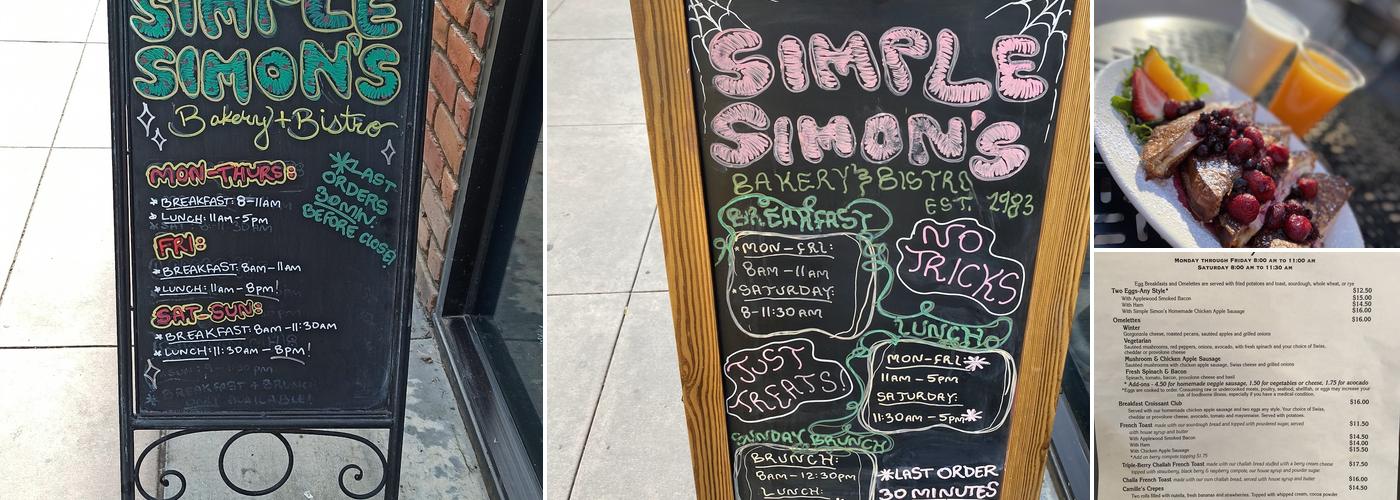 SIMPLE
SIMON'S
Bakery + Bistro
MON-THURS:
* BREAKFAST: 8-11AM
* LUNCH: 11AM-5PM
*LAST
ORDERS
30 MIN.
BEFORE CLOSE!
FRI:
* BREAKFAST: 8AM-11AM
* LUNCH: 11AM-8PM!
SAT-SUN:
* BREAKFAST: 8AM-11:30AM
* LUNCH: 11:30AM-8PM!
BREAKFAST + BRUNCH
ONLY AVAILABLE!
SIMPLE
SIMON'S
BAKERY & BISTRO
EST. 1983
BREAKFAST
*MON-FRI:
8AM-11AM
*SATURDAY:
8-11:30AM
NO
TRICKS
JUST
TREATS!
LUNCH
MON-FRI:*
11AM-5PM
SATURDAY:
11:30AM-5PM*
SUNDAY BRUNCH
BRUNCH:
8AM-12:30PM
LUNCH:
*LAST ORDER
30 MINUTES
MONDAY THROUGH FRIDAY 8:00 AM TO 11:00 AM
SATURDAY 8:00 AM TO 11:30 AM
Egg Breakfasts and Omelettes are served with fried potatoes and toast, sourdough, whole wheat, or rye
Two Eggs-Any Style* $12.50
With Applewood Smoked Bacon $15.00
With Ham $14.50
With Simple Simon's Homemade Chicken Apple Sausage $16.00
Omelettes $16.00
Winter
Gorgonzola cheese, roasted pecans, sautéed apples and grilled onions
Vegetarian
Sautéed mushrooms, red peppers, onions, avocado, with fresh spinach and your choice of Swiss,
cheddar or provolone cheese
Mushroom & Chicken Apple Sausage
Sautéed mushrooms with chicken apple sausage, Swiss cheese and grilled onions
Fresh Spinach & Bacon
Spinach, tomato, bacon, provolone cheese and basil
* Add-ons - 4.50 for homemade veggie sausage, 1.50 for vegetables or cheese, 1.75 for avocado
*Eggs are cooked to order. Consuming raw or undercooked meats, poultry, seafood, shellfish, or eggs may increase your
risk of foodborne illness, especially if you have a medical condition.
Breakfast Croissant Club $16.00
Served with our homemade chicken apple sausage and two eggs any style. Your choice of Swiss,
cheddar or provolone cheese, avocado, tomato and mayonnaise. Served with potatoes.
French Toast made with our sourdough bread and topped with powdered sugar, served $11.50
with house syrup and butter
With Applewood Smoked Bacon $14.50
With Ham $14.00
With Chicken Apple Sausage $15.50
*Add on berry compote topping $1.75
Triple-Berry Challah French Toast made with our challah bread studded with a berry cream cheese $17.50
topped with strawberry, black berry & raspberry compote, our house syrup and powder sugar.
Challa French Toast made with our challah bread, served with our house syrup and powder sugar. $16.00
Camille's Crepes $14.50
Two rolls filled with nutella, fresh bananas and strawberries. Topped with whipped cream, cocoa powder